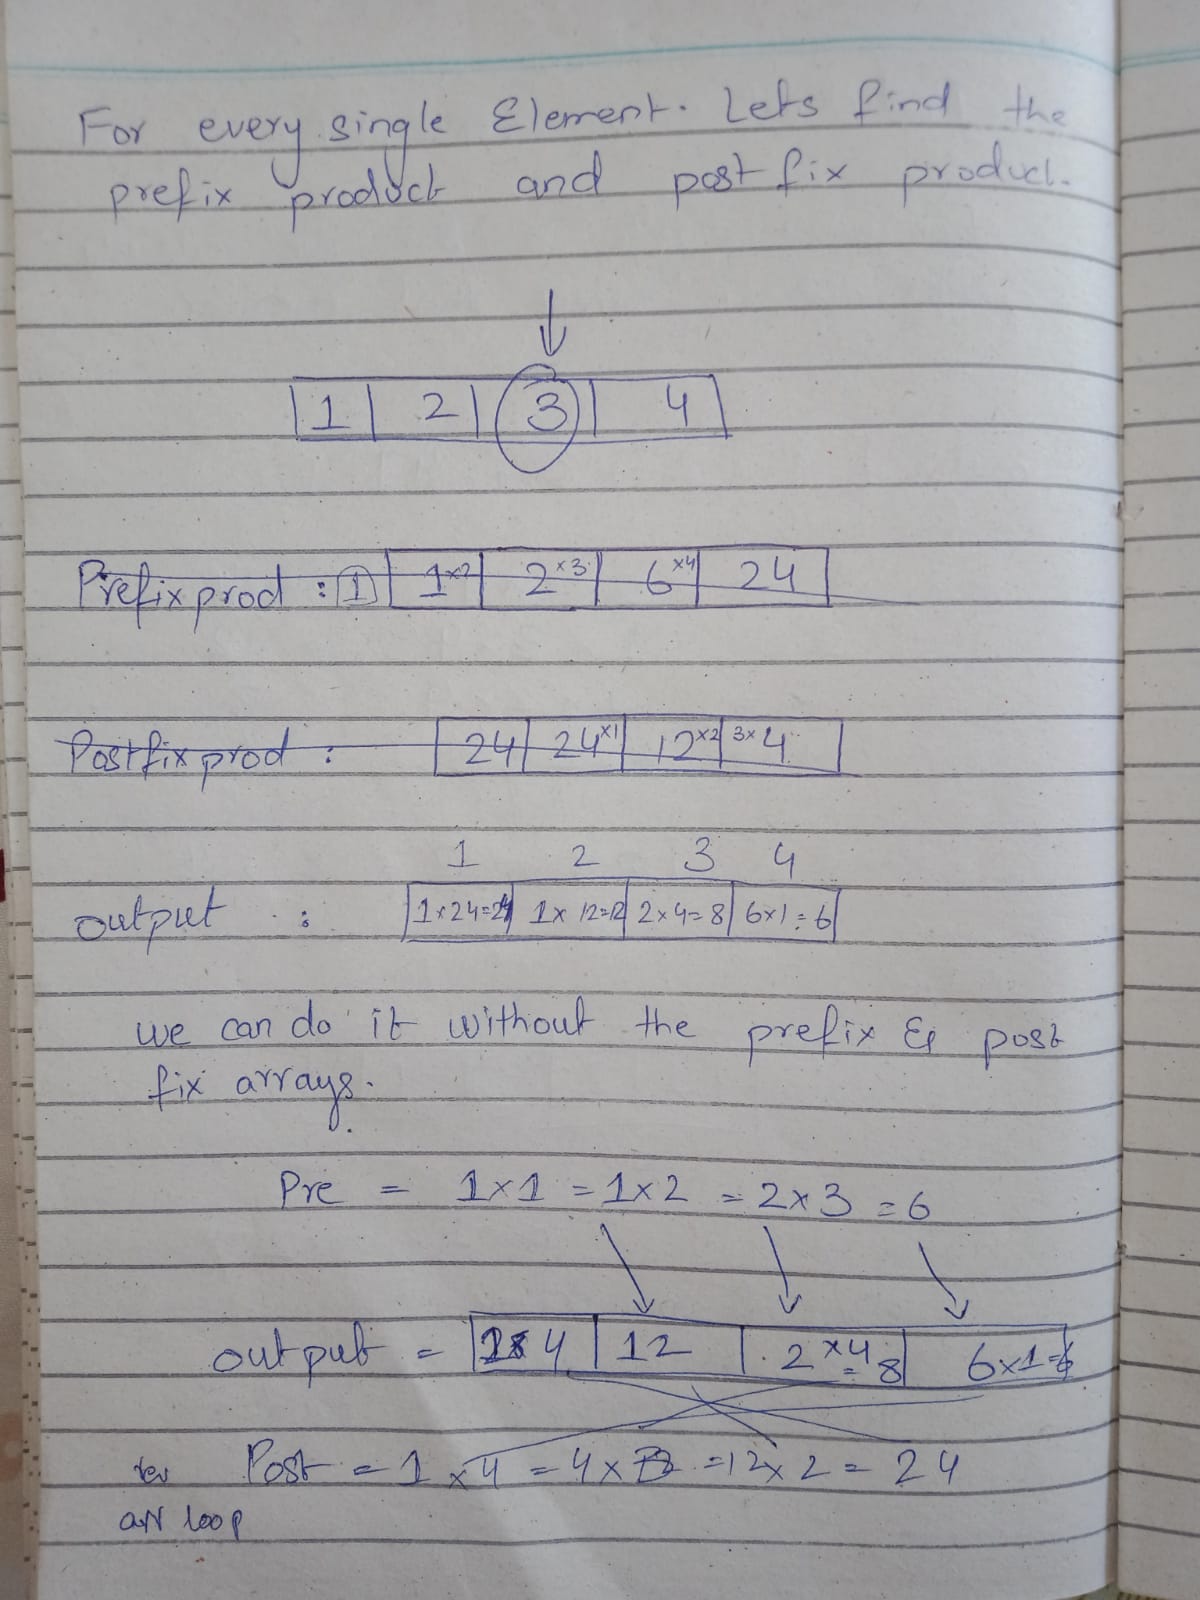 For every single Element. Lets find the
prefix product and post fix product.
1 2 3 4
Prefix prod : 1 1 x2 2 x3 6 x4 24
Postfix prod : 24 24 x1 12 x2 3x 4
1 2 3 4
output : 1x24=24 1x 12=12 2x4=8 6x1=6
we can do it without the prefix & post
fix arrays.
Pre = 1x1 =1x2 =2x3 =6
output = 4 12 2 x4 =8 6x1=6
rev Post = 1 x4 =4x =12x2= 24
arr loop